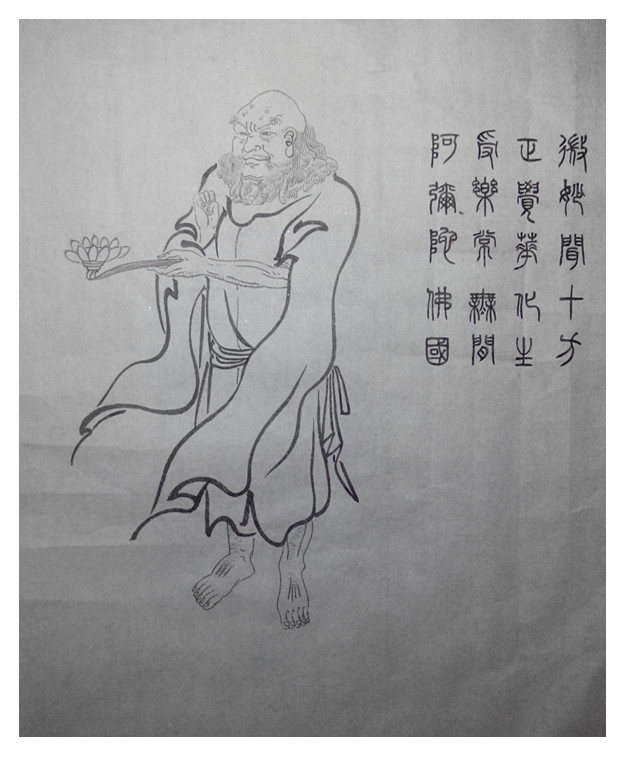 微妙聞十方
正覺華化生
受樂常無間
阿彌陀佛國